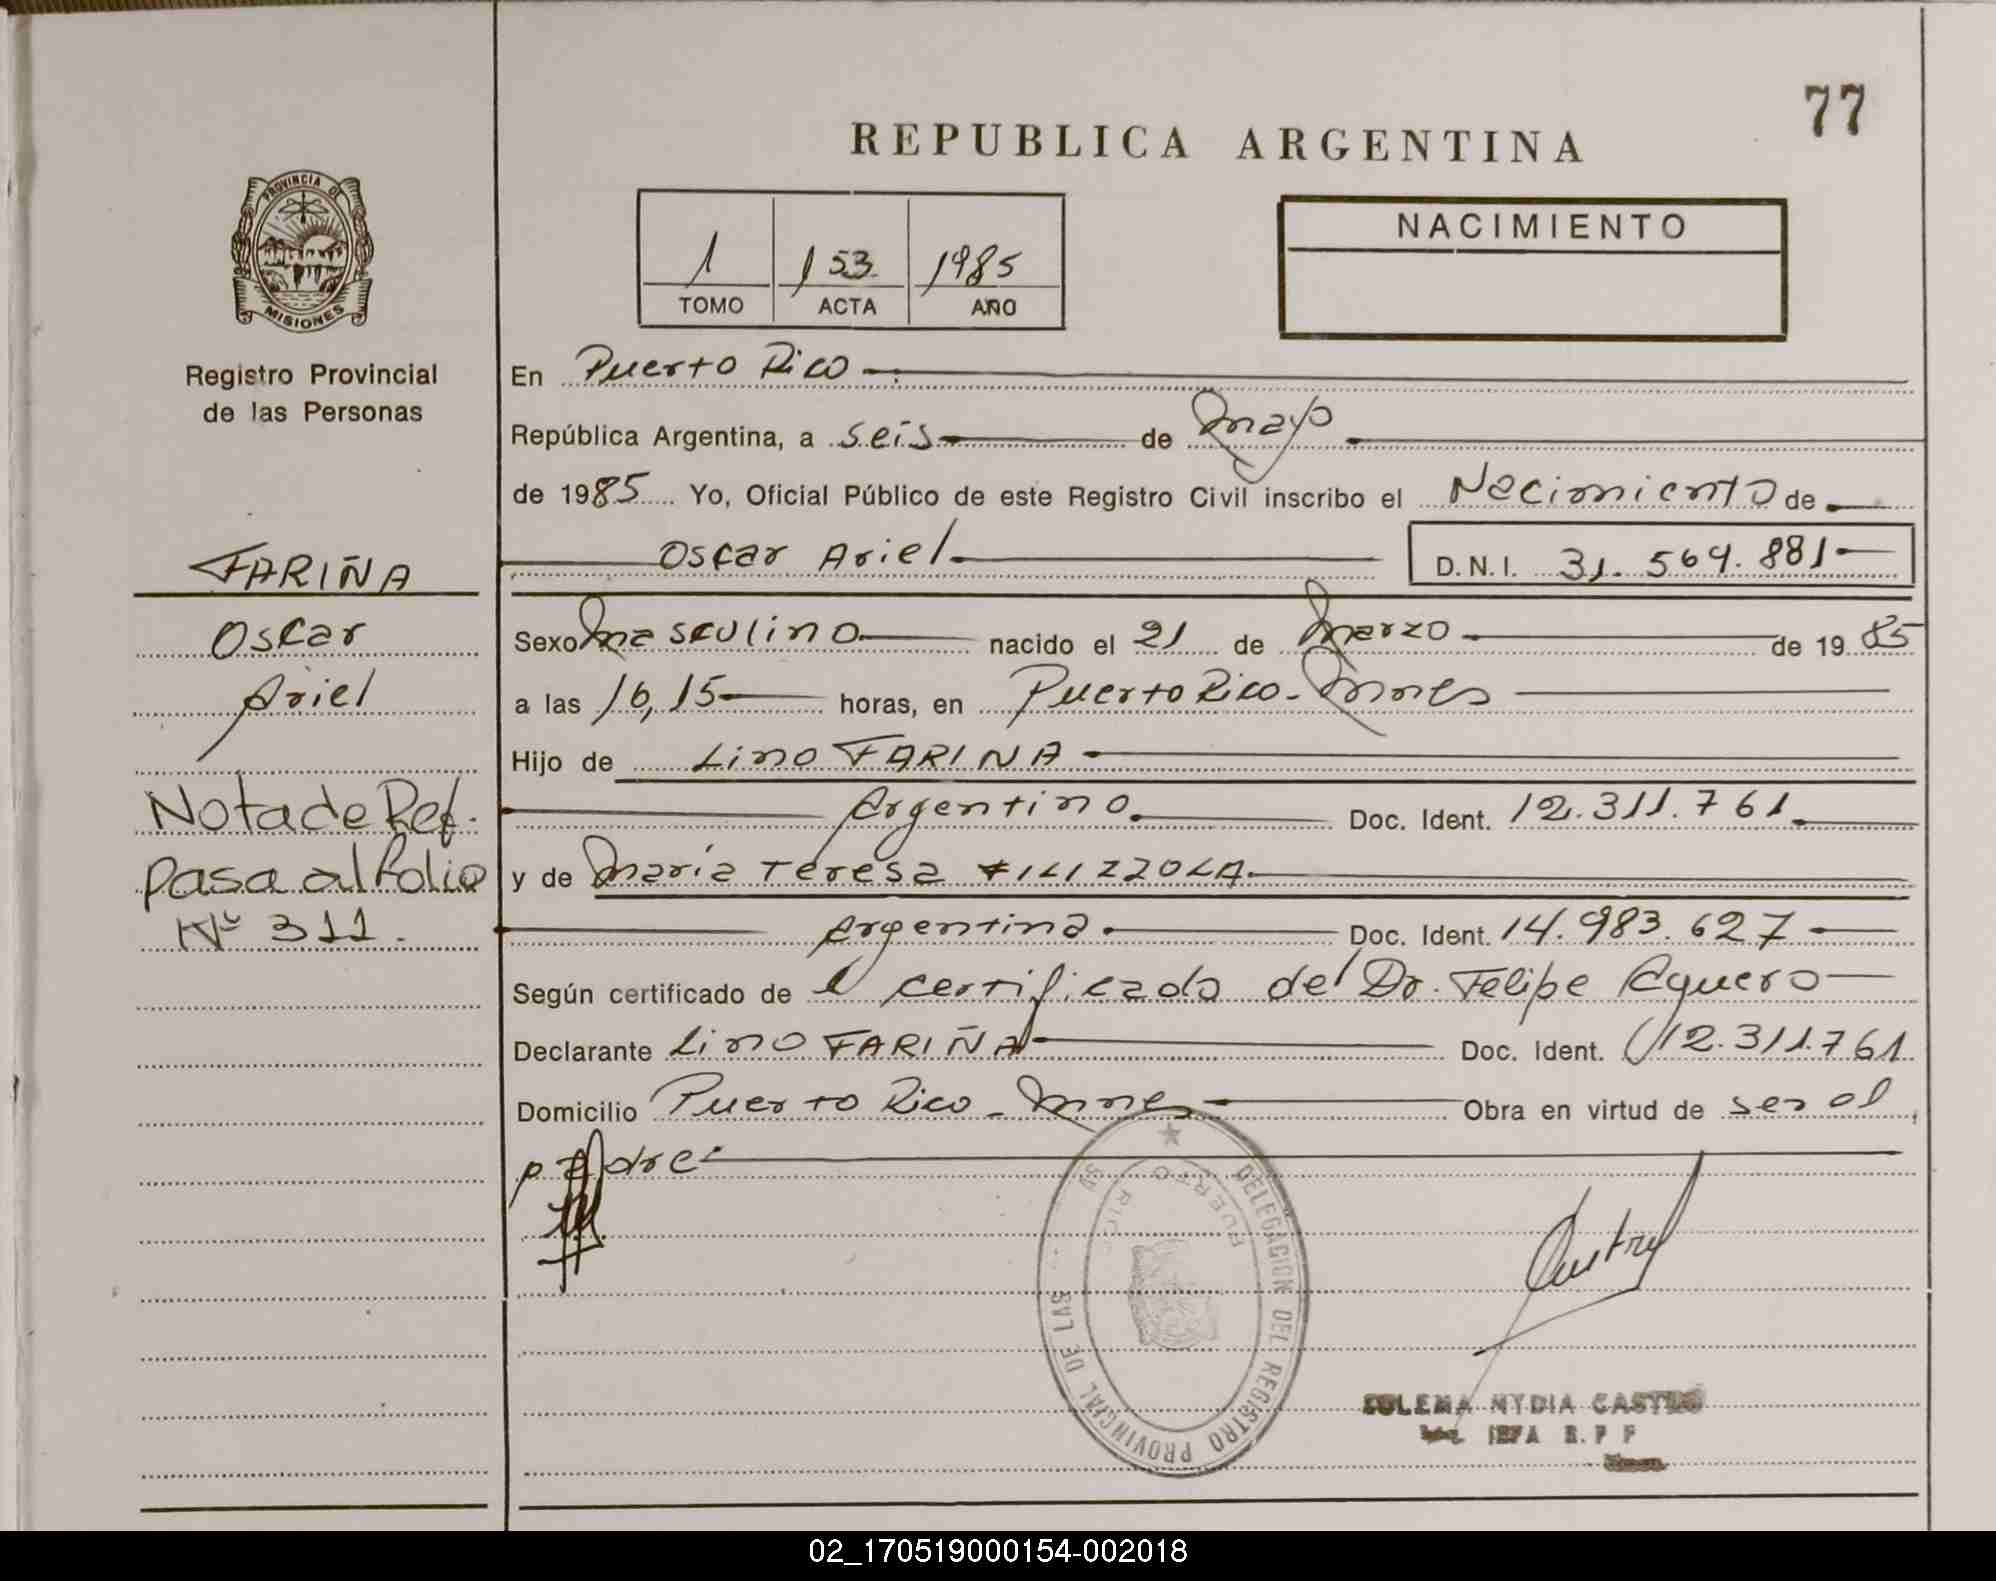 77
REPUBLICA ARGENTINA
PROVINCIA DE
MISIONES
Registro Provincial
de las Personas
1 153 1985
TOMO ACTA AÑO
NACIMIENTO
En Puerto Rico
República Argentina, a seis de mayo
de 1985 Yo, Oficial Público de este Registro Civil inscribo el Nacimiento de
Oscar Ariel D.N.I. 31.569.881
FARIÑA
Oscar
Ariel
Nota de Ref.
pasa al folio
Nº 311.
Sexo masculino nacido el 21 de marzo de 1985
a las 16,15 horas, en Puerto Rico - Mnes
Hijo de Lino FARINA
Argentino. Doc. Ident. 12.311.761
y de María Teresa VILIZZOLA
Argentina. Doc. Ident. 14.983.627
Según certificado de el certificado del Dr. Felipe Aguero
Declarante Lino FARIÑA Doc. Ident. 12.311.761
Domicilio Puerto Rico - Mnes Obra en virtud de ser el
padre
DELEGACION DEL REGISTRO PROVINCIAL DE LAS
PUERTO RICO
NYDIA CASTRO
02_170519000154-002018